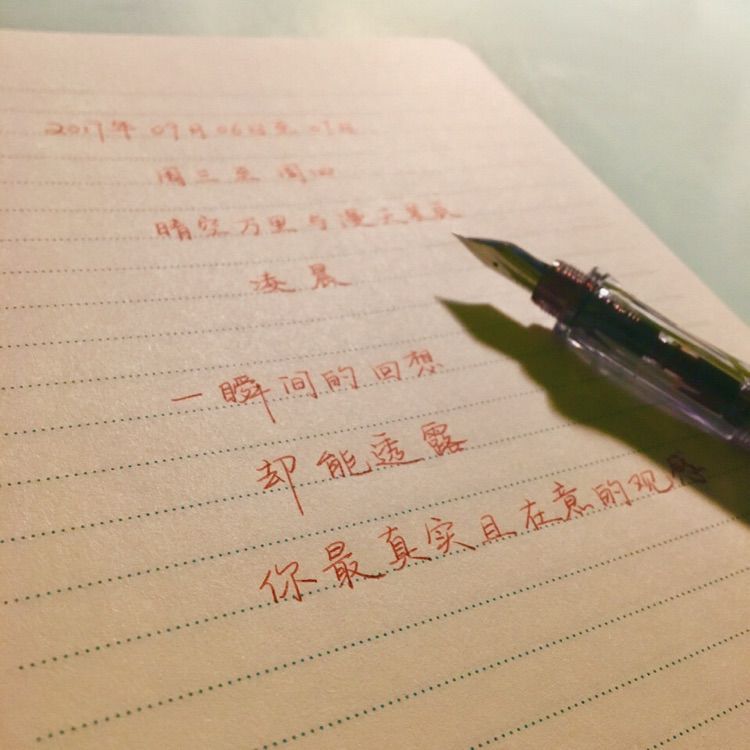 2017年 09月 06日至 07日
周三至周四
晴空万里与漫天星辰
凌晨
一瞬间的回想
却能透露
你最真实且在意的观感